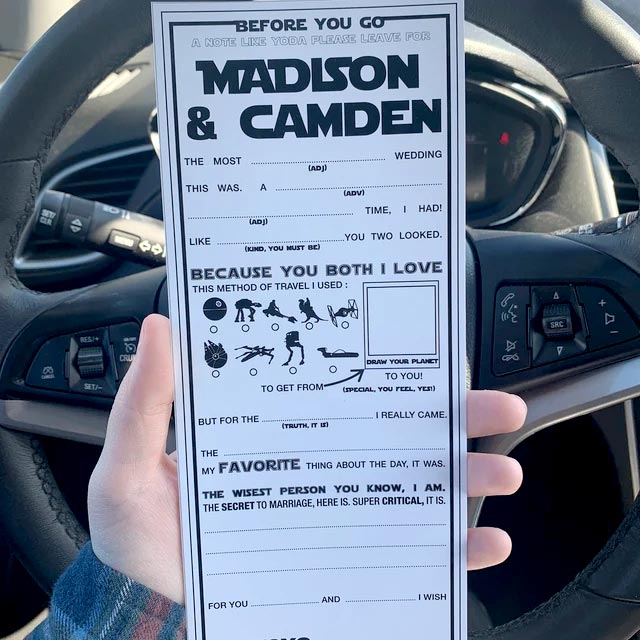 BEFORE YOU GO
A NOTE LIKE YODA PLEASE LEAVE FOR
MADISON
& CAMDEN
THE MOST ........ WEDDING
(ADJ)
THIS WAS. A ........
(ADV)
........ TIME, I HAD!
(ADJ)
LIKE ........ YOU TWO LOOKED.
(KIND, YOU MUST BE)
BECAUSE YOU BOTH I LOVE
THIS METHOD OF TRAVEL I USED :
DRAW YOUR PLANET
TO GET FROM TO YOU!
(SPECIAL, YOU FEEL, YES!)
BUT FOR THE ........ I REALLY CAME.
(TRUTH, IT IS)
THE ........
MY FAVORITE THING ABOUT THE DAY, IT WAS.
THE WISEST PERSON YOU KNOW, I AM.
THE SECRET TO MARRIAGE, HERE IS. SUPER CRITICAL, IT IS.
FOR YOU ........ AND ........ I WISH
RES/+
SET/-
SRC